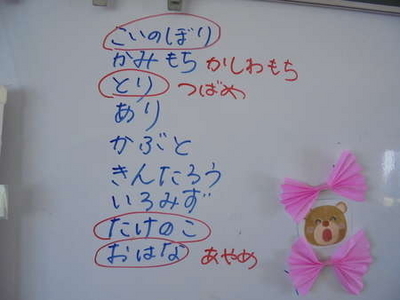 こいのぼり
かみもち かしわもち
とり つばめ
あり
かぶと
きんたろう
いろみず
たけのこ
おはな あやめ